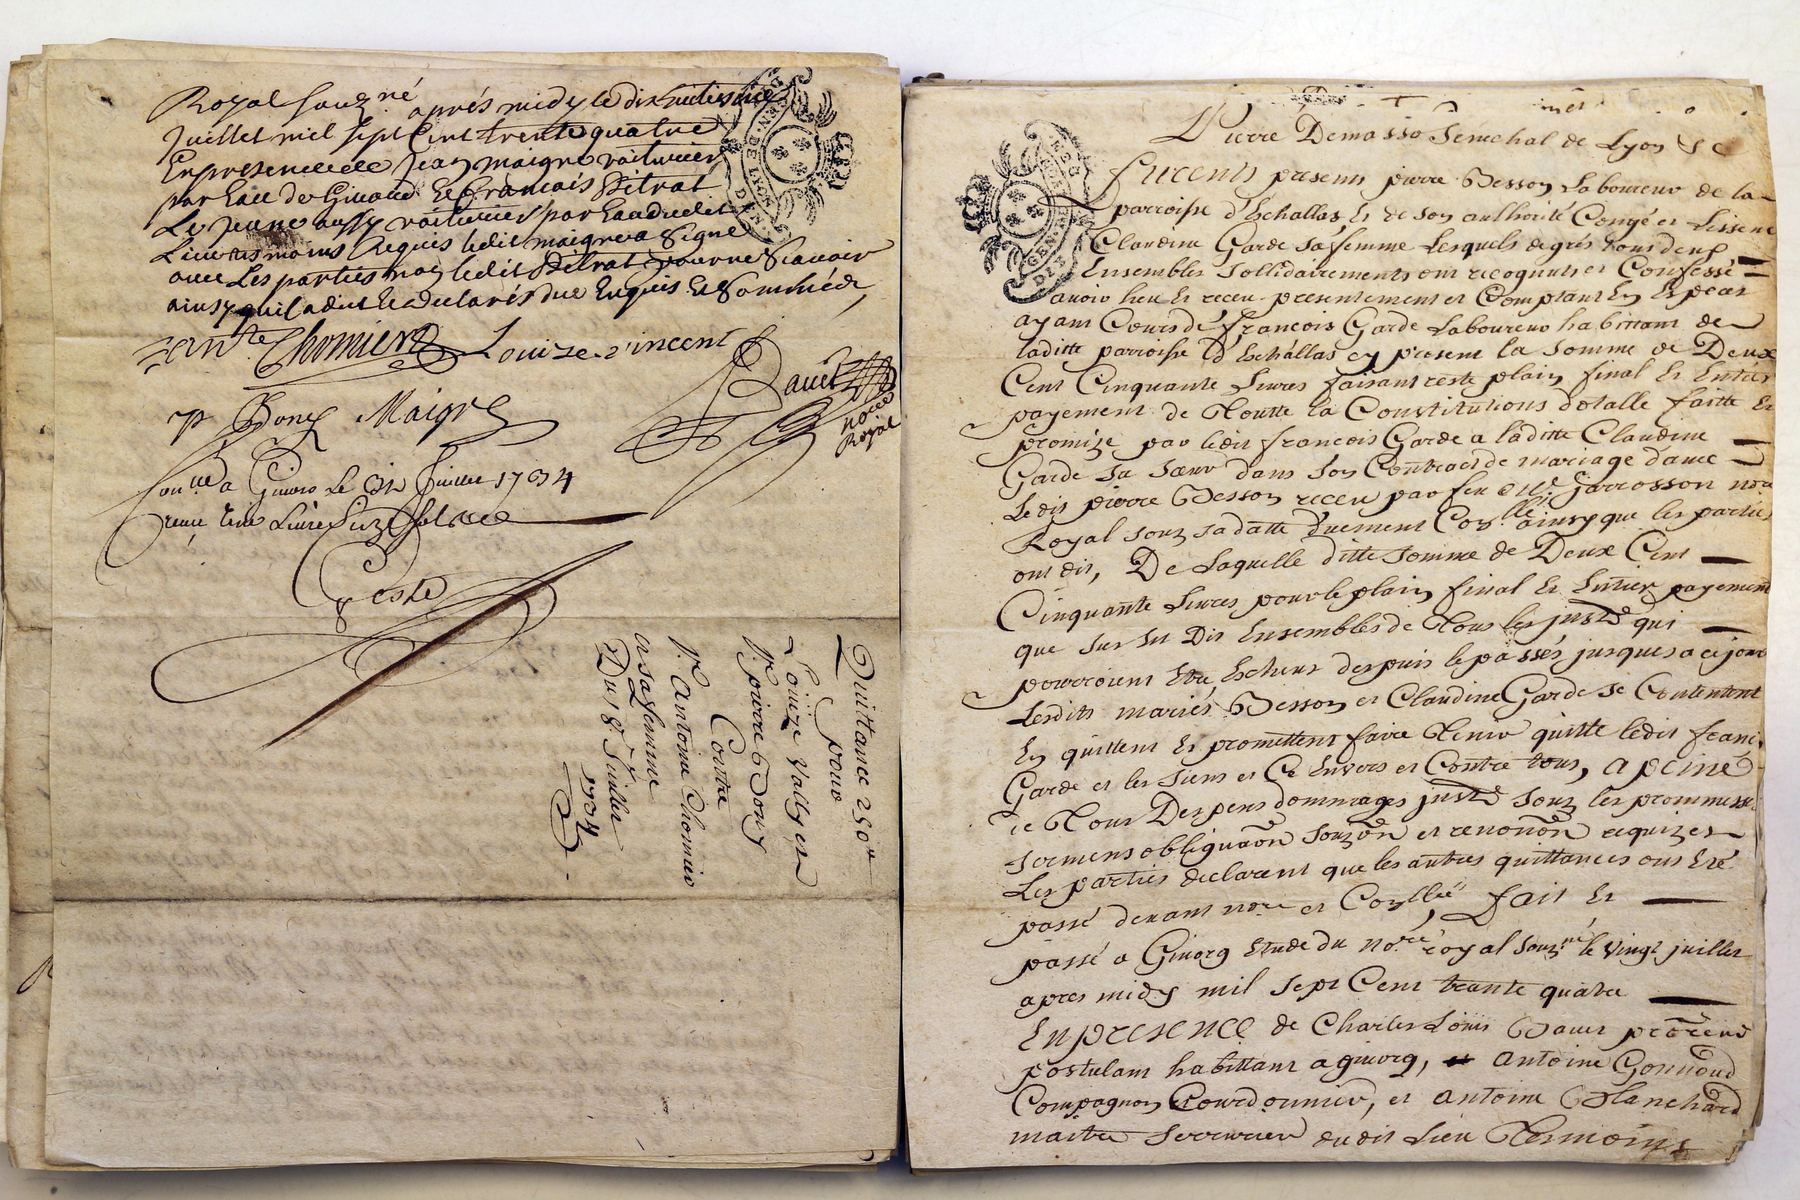 Royal souz.né après midy le dix huitiesme
Juillet mil sept Cent trente quatre
En presence de Jean maigre voiturier
par Eau de Givors Et françois
Le Jeune aussy voiturier par Eau dudit
Lieu tesmoins Requis ledit maigre a Signé
avec Les parties non ledit pour ne Scavoir
ainsy quil a dit Et declaré de ce Enquis Et Sommé
Chomier Louize vincent
p Bony Maigre
Bauer
no.re
Royal
Con.llé a Givors Le Juillet 1734
receu Une Livre
Quittance 250.tt
pour
Louize Vallyer
Sr. pierre Bony
Contre
Sr. Antoine Chomier
et sa femme
Du 18.e Juillet
1734
DE LYON
GEN. DE LYON
Pierre Demasso Senechal de Lyon
furents presents pierre Besson Laboureur de la
parroisse d'Echallas Et de son authorité Congé et Lissence
Claudine Garde sa femme Lesquels de grés tous deux
Ensembles sollidairements ont recognuts et Confessé
avoir heu Et receu presentement et Comptant En Especes
ayant Cours de françois Garde Laboureur habittant de
laditte parroisse d'Echallas cy present la somme de Deux
Cent Cinquante Livres faisant reste plain final Et Entier
payement de toutte la Constitutions dotalle faitte Et
promize par ledit françois Garde a laditte Claudine
Garde sa sœur dans son Contract de mariage d'avec
Ledit pierre Besson receu par feu Me. Jarrosson no.re
Royal souz sa datte d'uement Con.llé ainsy que les parties
ont dit, De Laquelle ditte somme de Deux Cent
Cinquante Livres pour le plain final Et Entier payement
que sus Est Dit Ensembles de tous les justs qui
pourroient Etre Echeus despuis le passés jusques a ce jour
Lesdits mariés Besson et Claudine Garde se Contentent
En quittent Et promettent faire tenir quitte ledit franç.
Garde et les siens et Ce Envers et Contre tous, a peine
de tous Despens dommages souz les prommesses
sermens obliguaôn souzôn et renonôn requizes
Les parties declarent que les autres quittances ont Eté
passé devant no.re et Con.llé fait Et
passé a Givorg Etude du no.re royal souz.né le vingt juillet
apres midy mil sept Cent trante quatre
En presence de Charles Louis Bauer
postulant habittant a givorg, et antoine Gonnoud
Compagnon Courdonnier, et antoine Blanchard
maitre serrurier dudit Lieu tesmoins